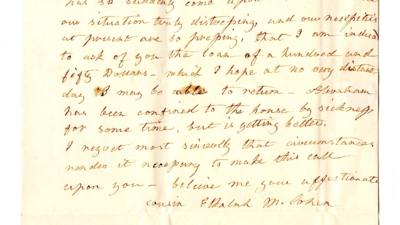 has so suddenly come upon
our situation truly distressing, and our necessities
at present are so pressing, that I am induced
to ask of you the loan of a hundred and
fifty Dollars - which I hope at no very distant
day I may be able to return - Abraham
has been confined to the house by sickness
for some time, but is getting better.
I regret most sincerely that circumstances
renders it necessary to make this call
upon you - believe me your affectionate
cousin M. Cohen